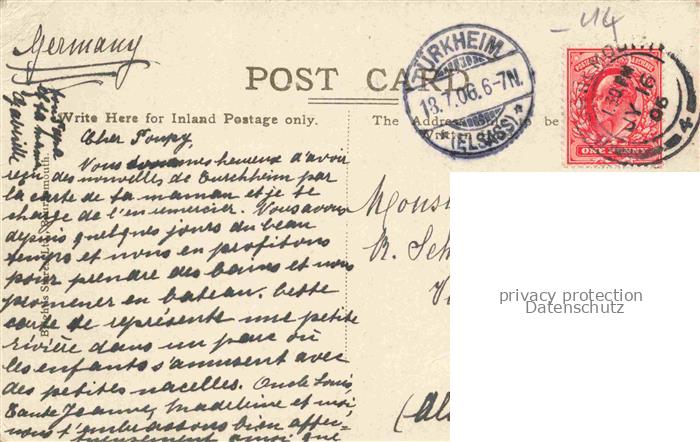 Germany
- 414
POST CARD
TÜRKHEIM
18.7.06.6-7N.
* (ELSASS) *
JY 16
06
4
ONE PENNY
Write Here for Inland Postage only.
The Address
Written
Gabrielle
Cher Toupy,
Nous sommes heureux d'avoir
reçu des nouvelles de Turckheim par
la carte de ta maman et je te
charge de l'en remercier. Nous avons
depuis quelques jours du beau
temps et nous en profitons
pour prendre des bains et nous
promener en bateau. Cette
carte de représente une petite
rivière dans un parc où
les enfants s'amusent avec
des petites nacelles. Oncle Louis,
Tante Jeanne, Madeleine et moi,
nous t'embrassons bien affec-
tueusement ainsi que
Monsi
R. Sch
(Al
privacy protection
Datenschutz